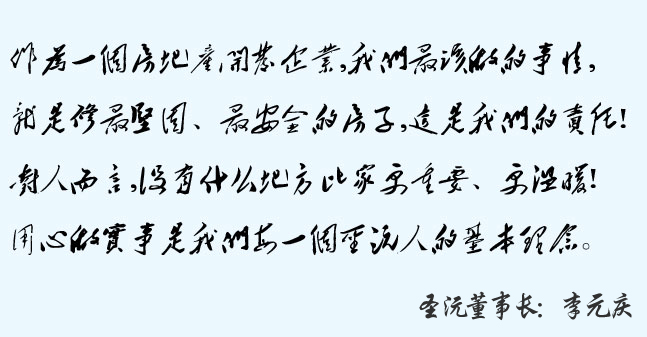 作爲一個房地產開發企業,我們最該做的事情,
就是修最堅固、最安全的房子,這是我們的責任!
對人而言,沒有什么地方比家更重要、更溫暖!
用心做實事是我們每一個聖沅人的基本理念。
圣沅董事长：李元庆